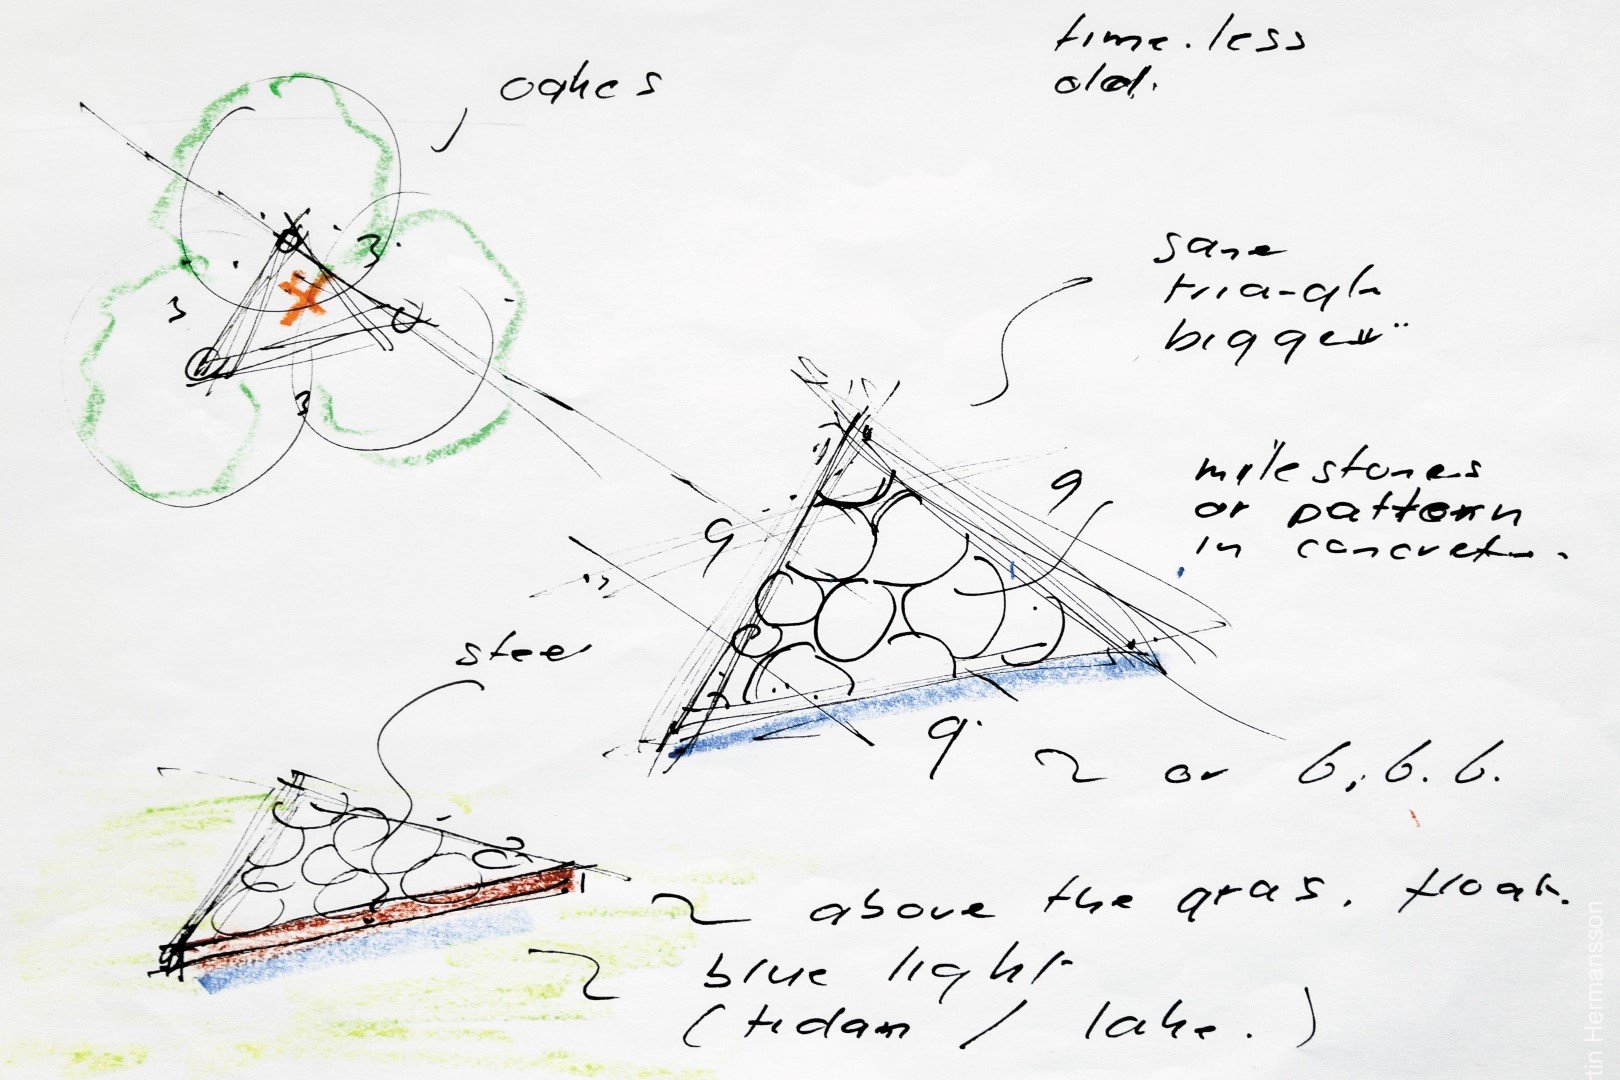 time.less
old.
oakes
3
3
3
same
triangle
bigger
milestones
or pattern
in concrete.
9
9
9
steel
or 6.6.6.
above the gras. float.
blue light
(tidan / lake.)
tin Hermansson